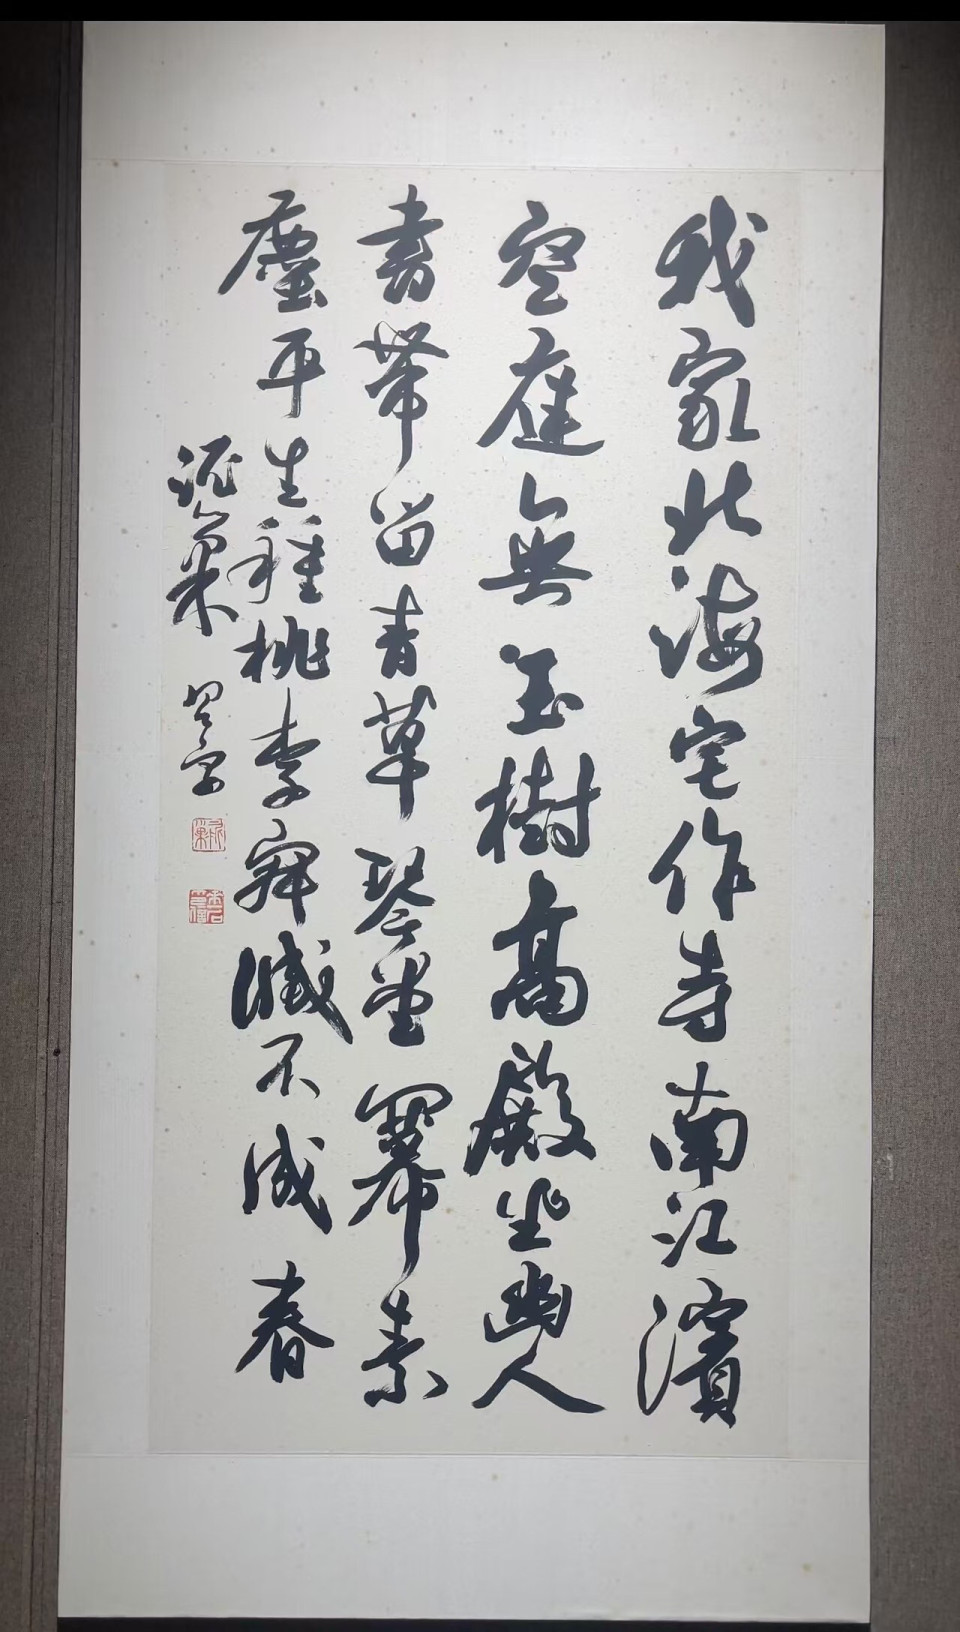 我家北海宅作寺南江濱
空庭無玉樹高殿坐幽人
書帶留青草琴堂冪素
塵平生種桃李寂滅不成春